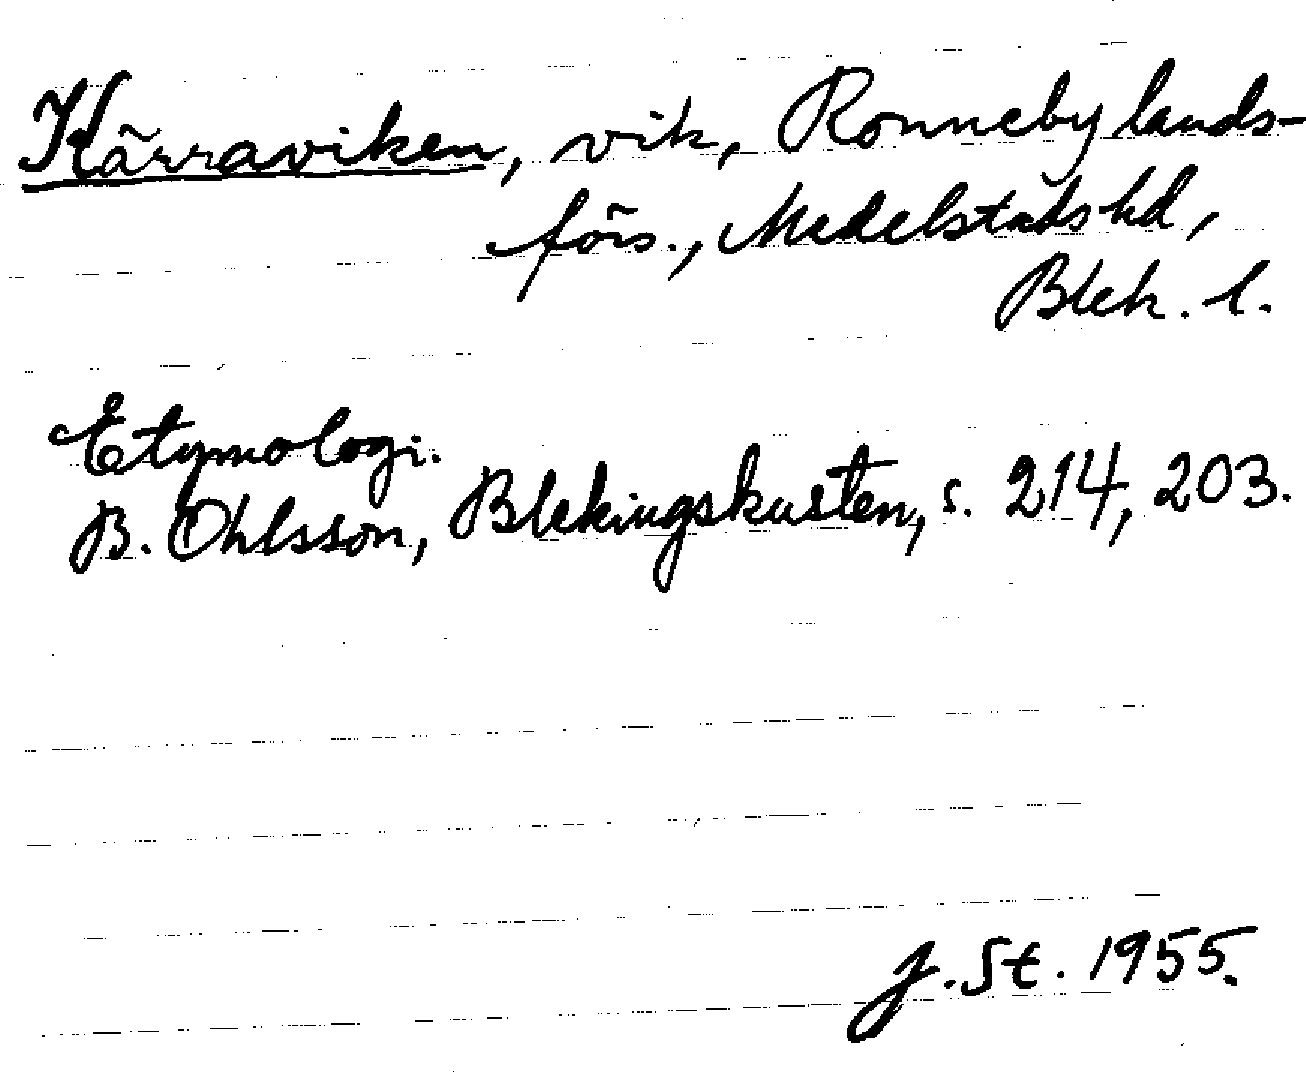 Kärraviken, vik, Ronneby lands-
förs., Medelstads hd,
Blek. l.
Etymologi.
B. Ohlsson, Blekingskusten, s. 214, 203.
J. St. 1955.